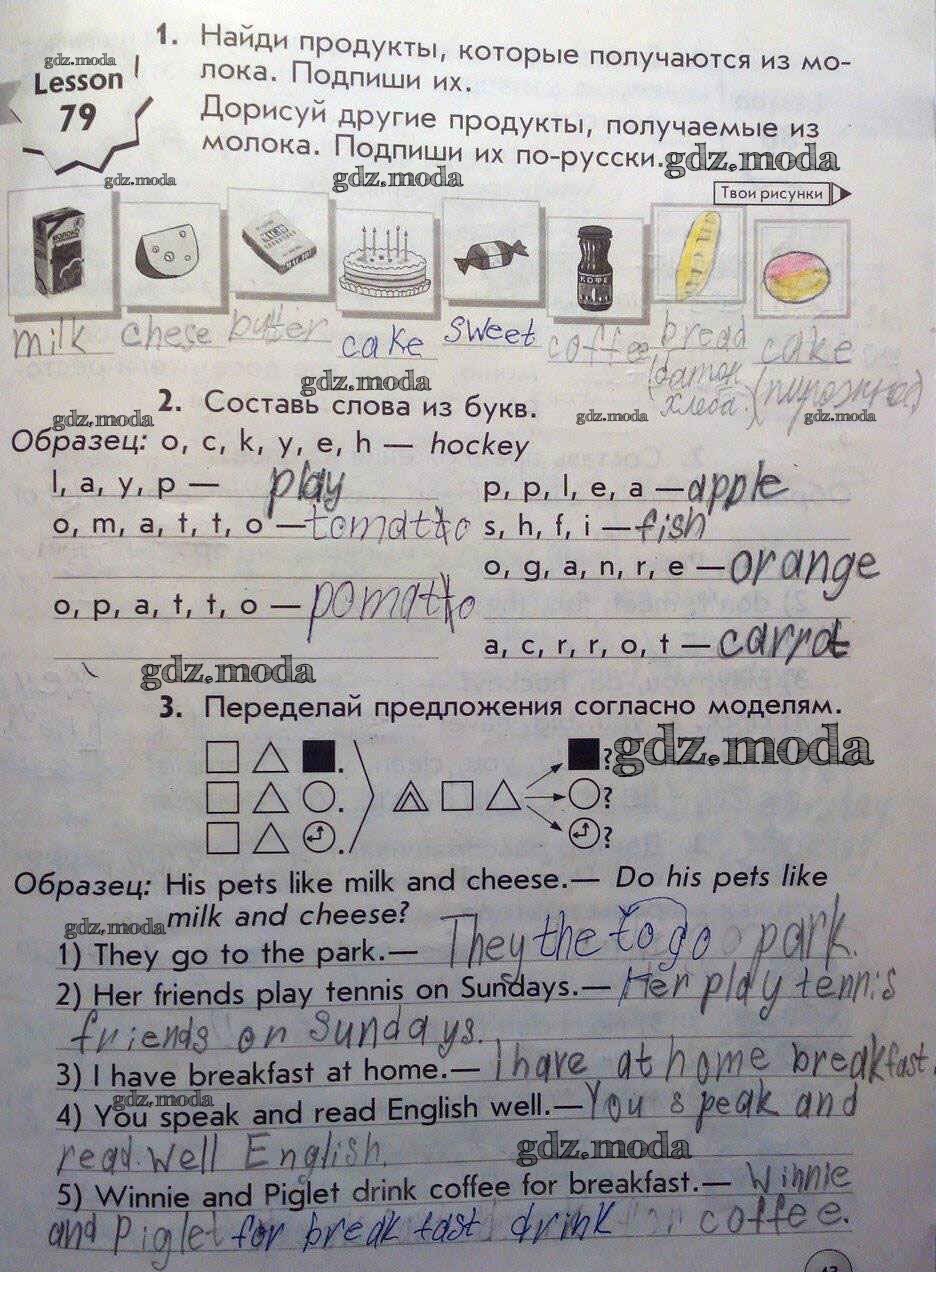 1. Найди продукты, которые получаются из мо-
gdz.moda
лока. Подпиши их.
Lesson
79
Дорисуй другие продукты, получаемые из
молока. Подпиши их по-русски. gdz.moda
gdz.moda gdz.moda
Твои рисунки
МОЛОКО
КОФЕ
milk chese butter cake sweet coffee bread cake
(батон хлеба.) (пирожное)
gdz.moda
2. Составь слова из букв.
gdz.moda gdz.moda gdz.moda
Образец: o, c, k, y, e, h — hockey
l, a, y, p — play
p, p, l, e, a — apple
o, m, a, t, t, o — tomatto
s, h, f, i — fish
o, g, a, n, r, e — orange
o, p, a, t, t, o — pomatto
a, c, r, r, o, t — carrot
gdz.moda
3. Переделай предложения согласно моделям.
gdz.moda
. ?
. ?
. ?
Образец: His pets like milk and cheese.— Do his pets like
gdz.moda milk and cheese?
1) They go to the park.— They the to go park.
2) Her friends play tennis on Sundays.— Her play tennis
friends on Sundays.
3) I have breakfast at home.— I have at home breakfast.
gdz.moda
4) You speak and read English well.— You speak and
read well English.
gdz.moda
5) Winnie and Piglet drink coffee for breakfast.— Winnie
and Piglet for break fast drink coffee.
43